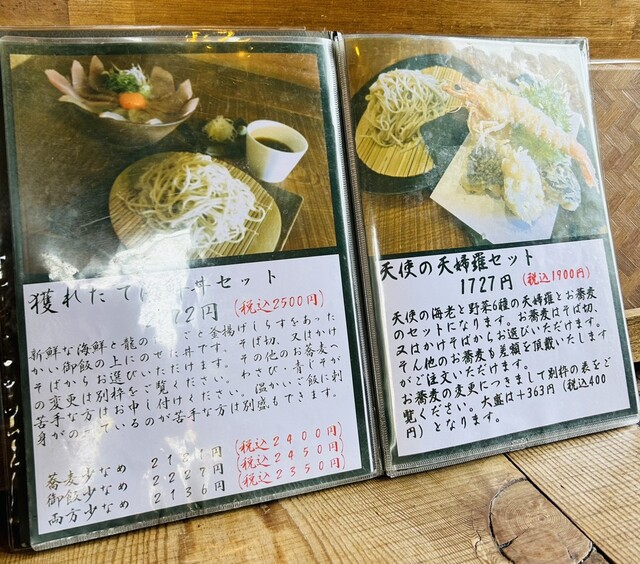 獲れたて 丼セット
72円 (税込2500円)
新鮮な海鮮と龍の ごと釜揚げしらすをあった
かい御飯の上にのせた丼です。そば切、又はかけ
そばからお選びいただけます。その他のお蕎麦へ
の変更は別枠をご覧ください。わさび・青じそが
苦手な方はお申し付けください。温かいご飯に刺
身がのっているのが苦手な方は別盛もできます。
蕎麦少なめ 21 1円 (税込2400円)
御飯少なめ 2227円 (税込2450円)
両方少なめ 2136円 (税込2350円)
天使の天婦羅セット
1727円 (税込1900円)
天使の海老と野菜6種の天婦羅とお蕎麦
のセットになります。お蕎麦はそば切、
又はかけそばからお選びいただけます。
そん他のお蕎麦も差額を頂戴いたします
がご注文いただけます。
お蕎麦の変更につきまして別枠の表をご
覧ください。大盛は+363円 (税込400
円) となります。